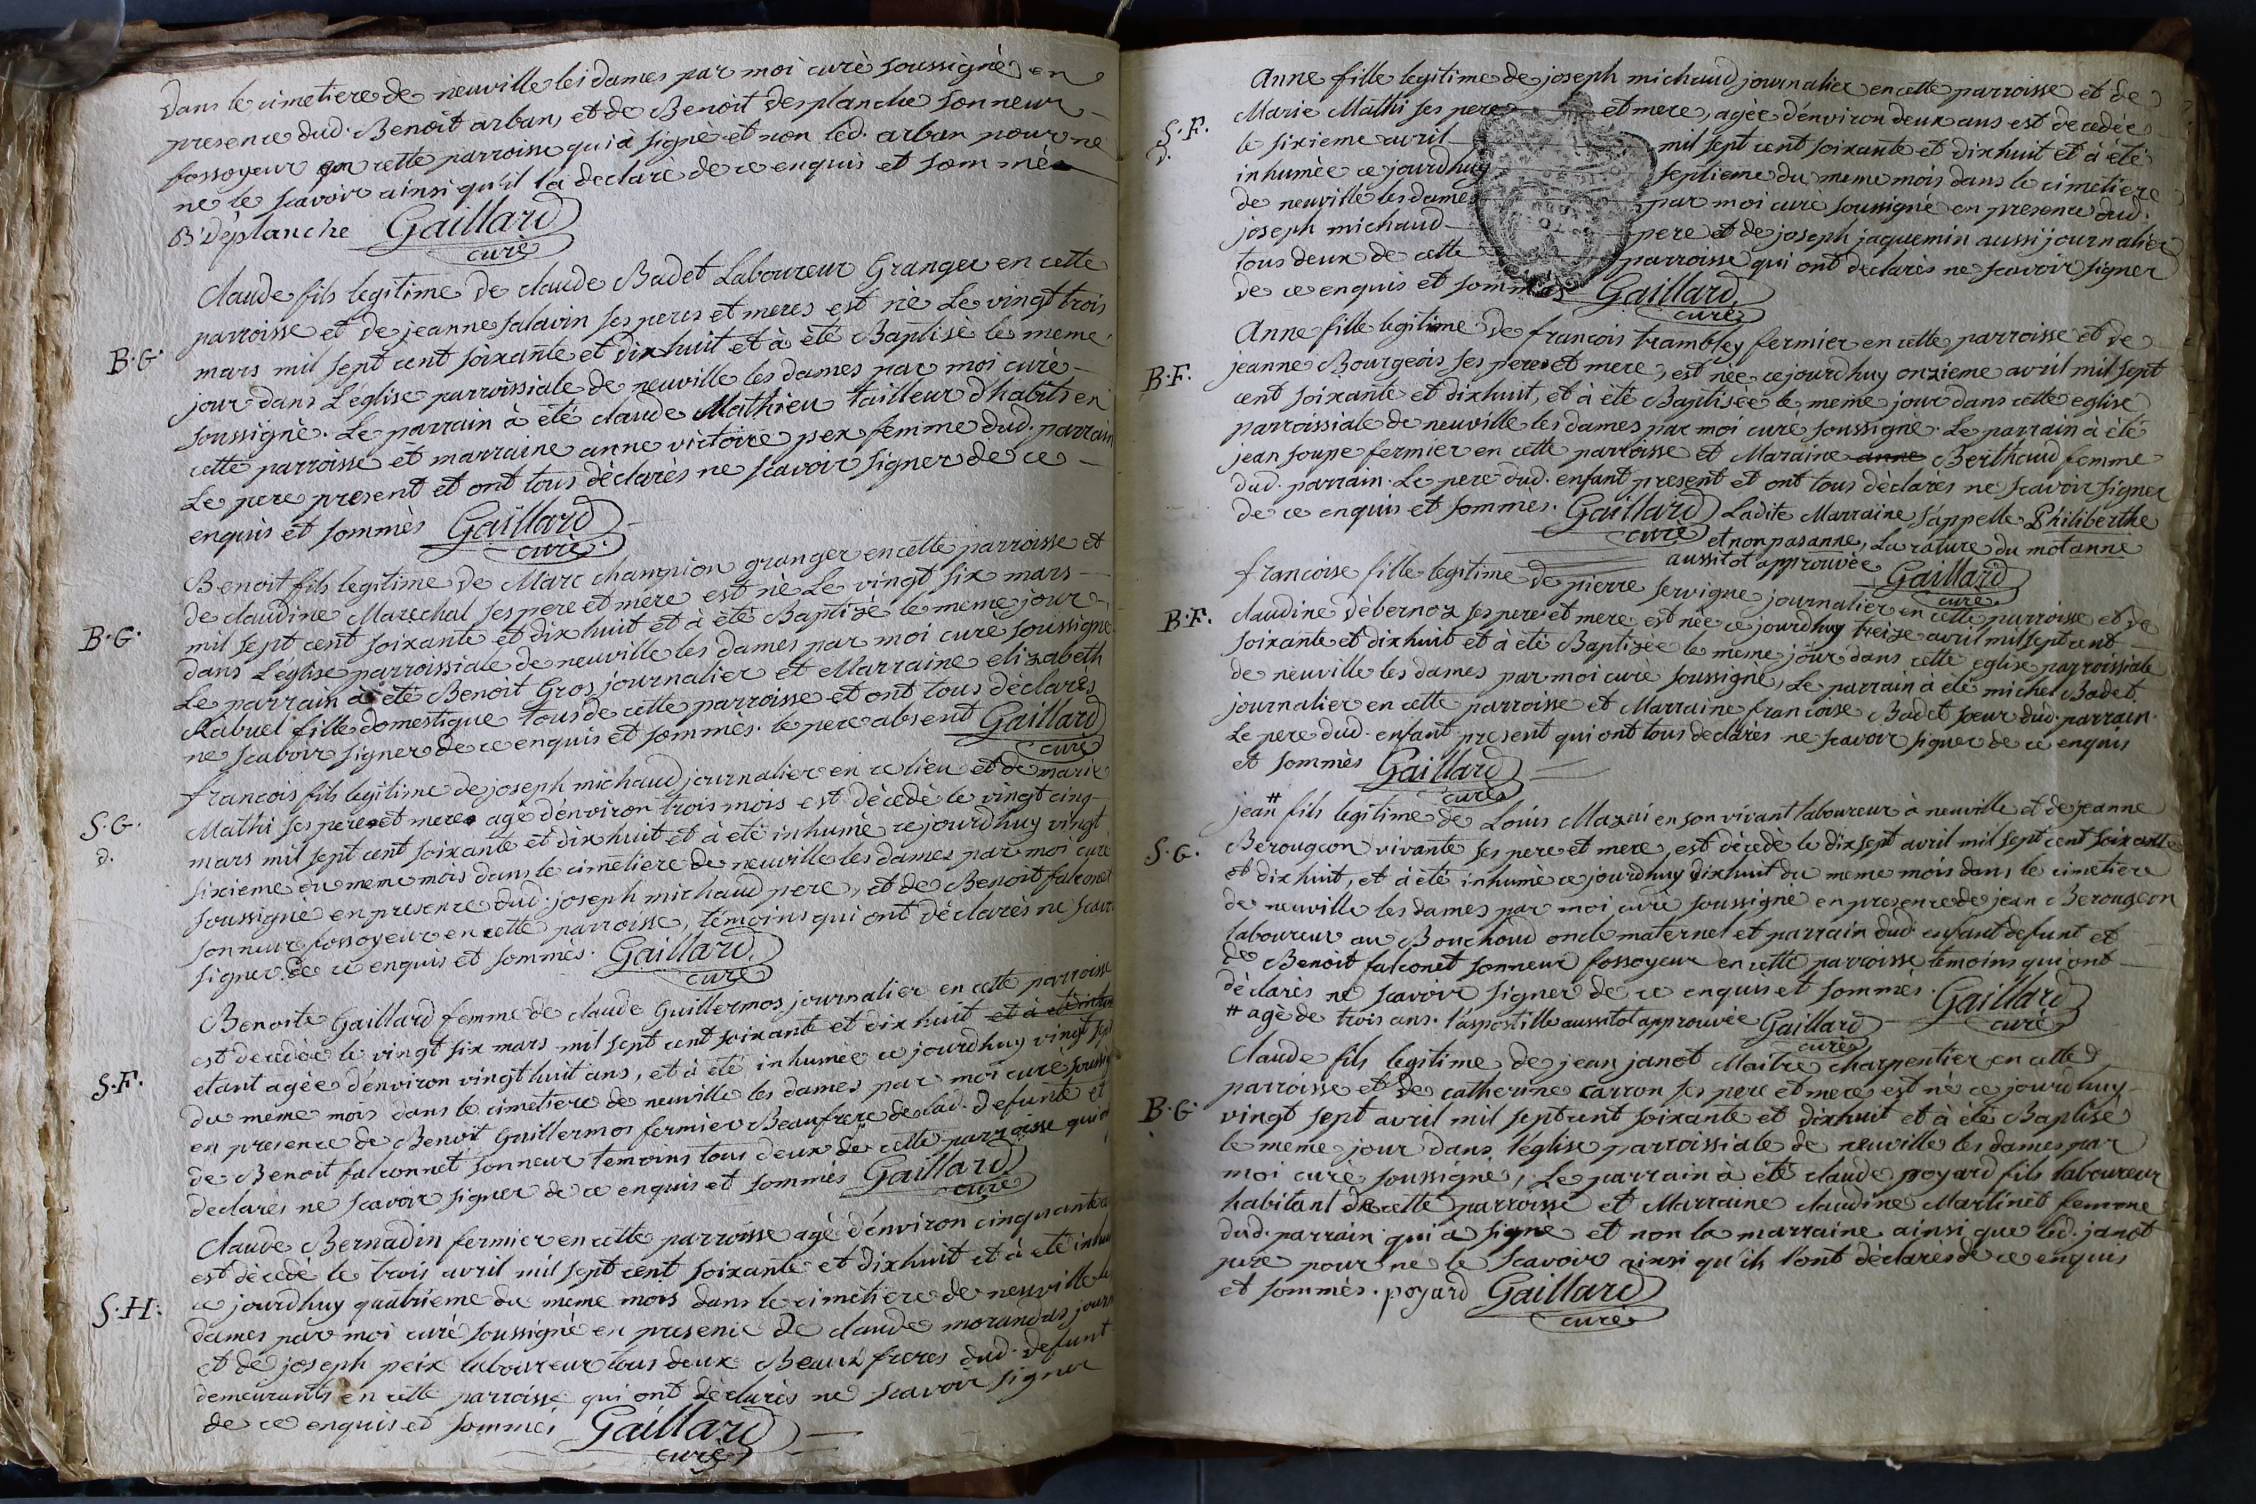 Dans le cimetiere de neuville les dames par moi curé soussigné en
presence dud. Benoit arban, et de Benoit Desplanche sonneur
fossoyeur en cette parroisse qui à signé et non led. arban pour ne
ne le scavoir ainsi qu'il la declaré de ce enquis et sommé
B. Déplanche Gaillard
curé
B.G.
Claude fils legitime de claude Badet Laboureur Granger en cette
parroisse et de jeanne salavin ses peres et meres est né Le vingt trois
mars mil sept cent soixante et dix huit et à été Baptisé le meme
jour dans L'église parroissiale de neuville les dames par moi curé
soussigné. Le parrain à été claude Mathieu tailleur d'habits en
cette parroisse et marraine anne victoire pex femme dud. parrain
Le pere present et ont tous déclarés ne scavoir signer de ce
enquis et sommés Gaillard
curé.
B.G.
Benoit fils legitime de Marc champion granger en cette parroisse et
de claudine Marechal ses pere et mere est né Le vingt six mars
mil sept cent soixante et dix huit et à été Baptizé le meme jour
dans L'église parroissiale de neuville les dames par moi curé soussigné
Le parrain à été Benoit Gros journalier et Marraine elizabeth
Rabuel fille domestique tous de cette parroisse et ont tous déclarés
ne scavoir signer de ce enquis et sommés. le pere absent Gaillard
curé
S.G.
d.
francois fils legitime de joseph michaud journalier en ce lieu et de marie
Mathi ses pere et mere agé d'environ trois mois est décedé le vingt cinq
mars mil sept cent soixante et dix huit et à été inhumé ce jourdhuy vingt
sixieme du meme mois dans le cimetiere de neuville les dames par moi curé
soussigné en presence dud. joseph michaud pere, et de Benoit falconet
sonneur fossoyeur en cette parroisse, témoins qui ont déclarés ne scav
signer de ce enquis et sommés. Gaillard
curé
S.F.
Benoite Gaillard femme de claude Guillermos journalier en cette parroisse
est decedée le vingt six mars mil sept cent soixante et dix huit et à été inhu
etant agée d'environ vingt huit ans, et à été inhumée ce jourdhuy vingt sept
du meme mois dans le cimetiere de neuville les dames par moi curé soussi
en presence de Benoit Guillermos fermier Beaufrere de lad. defunte et
de Benoit falconnet sonneur temoins tous deux de cette parroisse qui o
declarés ne scavoir signer de ce enquis et sommés Gaillard
curé
S.H.
Claude Bernadin fermier en cette parroisse agé d'environ cinquante a
est décedé le trois avril mil sept cent soixante et dixhuit et à été inhu
ce jourdhuy quatrieme du meme mois dans le cimetiere de neuville le
dames par moi curé soussigné en presence de claude morandas journ
et de joseph peix laboureur tous deux Beaux freres dud. defunt
demeurants en cette parroisse qui ont déclarés ne scavoir signer
de ce enquis et sommés Gaillard
curé
S.F.
d.
Anne fille legitime de joseph michaud journalier en cette parroisse et de
Marie Mathi ses pere et mere, agée d'environ deux ans est decedée
le sixieme avril mil sept cent soixante et dixhuit et à été
inhumée ce jourdhuy septieme du meme mois dans le cimetiere
de neuville les dames par moi curé soussigné en presence dud.
joseph michaud pere et de joseph jaquemin aussi journalier
tous deux de cette parroisse qui ont declarés ne scavoir signer
de ce enquis et sommés Gaillard
curé
B.F.
Anne fille legitime de francois trambley fermier en cette parroisse et de
jeanne Bourgeois ses pere et mere, est née ce jourdhuy onzieme avril mil sept
cent soixante et dixhuit, et à été Baptisée le meme jour dans cette eglise
parroissiale de neuville les dames par moi curé soussigné. Le parrain à été
jean soupe fermier en cette parroisse et Maraine anne Berthaud femme
dud. parrain. Le pere dud. enfant present et ont tous déclarés ne scavoir signer
de ce enquis et sommés. Gaillard Ladite Marraine s'appelle Philiberthe
curé et non pas anne, La rature du mot anne
aussitot approuvée Gaillard
curé
B.F.
francoise fille legitime de pierre servigne journalier en cette parroisse et de
claudine débernoz ses pere et mere est née ce jourdhuy treize avril mil sept cent
soixante et dixhuit et à été Baptizée le meme jour dans cette eglise parroissiale
de neuville les dames par moi curé soussigné, Le parrain à été michel Badet
journalier en cette parroisse et Marraine francoise Badet soeur dud. parrain.
Le pere dud. enfant present qui ont tous declarés ne scavoir signer de ce enquis
et sommés Gaillard
curé
S.G.
jean # fils legitime de Louis Mazui en son vivant laboureur à neuville et de jeanne
Berougeon vivante ses pere et mere, est décedé le dix sept avril mil sept cent soixante
et dixhuit, et à été inhumé ce jourdhuy dixhuit du meme mois dans le cimetiere
de neuville les dames par moi curé soussigné en presence de jean Berougeon
laboureur au Bouchoud oncle maternel et parrain dud. enfant defunt et
de Benoit falconet sonneur fossoyeur en cette parroisse temoins qui ont
déclarés ne scavoir signer de ce enquis et sommés. Gaillard
curé
# agé de trois ans. l'aspostille aussitot approuvée Gaillard
curé
B.G.
Claude fils legitime de jean janot Maitre charpentier en cette
parroisse et de catherine carron ses pere et mere est né ce jourdhuy
vingt sept avril mil sept cent soixante et dixhuit et à été Baptisé
le meme jour dans l'église parroissiale de neuville les dames par
moi curé soussigné, Le parrain à été claude poyard fils laboureur
habitant de cette parroisse et Marraine claudine Martinet femme
dud. parrain qui à signé et non la marraine ainsi que led. janot
pere pour ne le scavoir ainsi qu'ils l'ont déclarés de ce enquis
et sommés. poyard Gaillard
curé